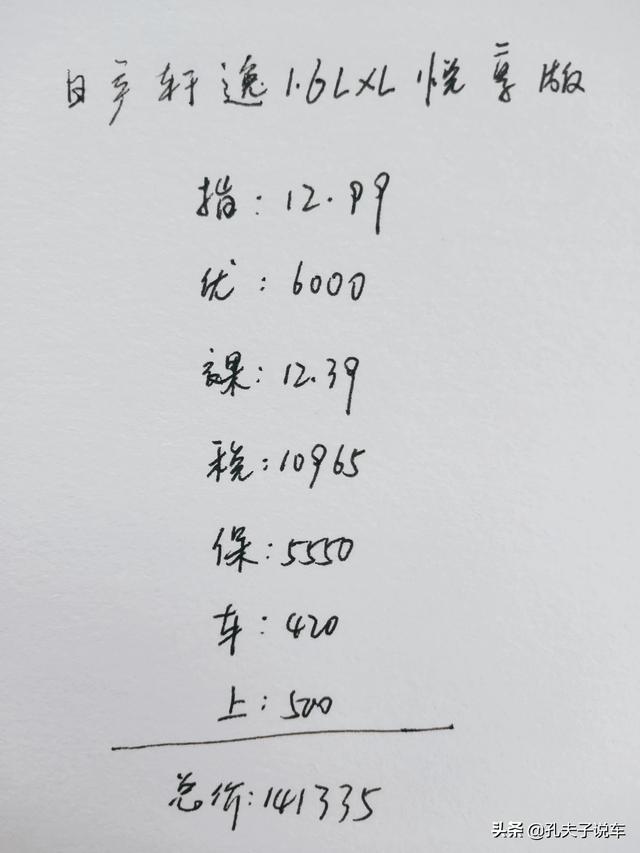 日产轩逸1.6LXL悦享版
指：12.99
优：6000
裸：12.39
税：10965
保：5550
车：420
上：500
总价：141335
头条 @孔夫子说车